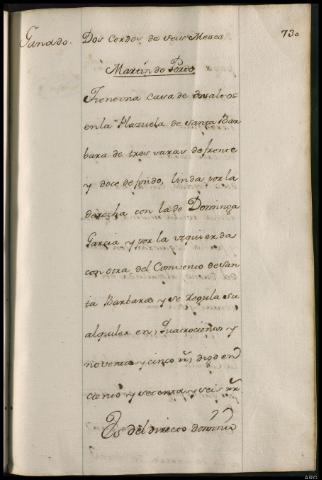 Ganado. Dos Cerdos de seis Meses 730
Martin de
Tiene una Casa de dos altos
en la Plazuela de Santa Bar
bara de tres varas de frente
y doce de fondo, linda por la
derecha con la de Dominga
Garcia y por la izquierda
con otra del Convento de San
ta Barbara y se regula su
alquiler en Quatrocientos y
noventa y cinco rrs digo en
ciento y sesenta y seis rrs
Es del directo dominio